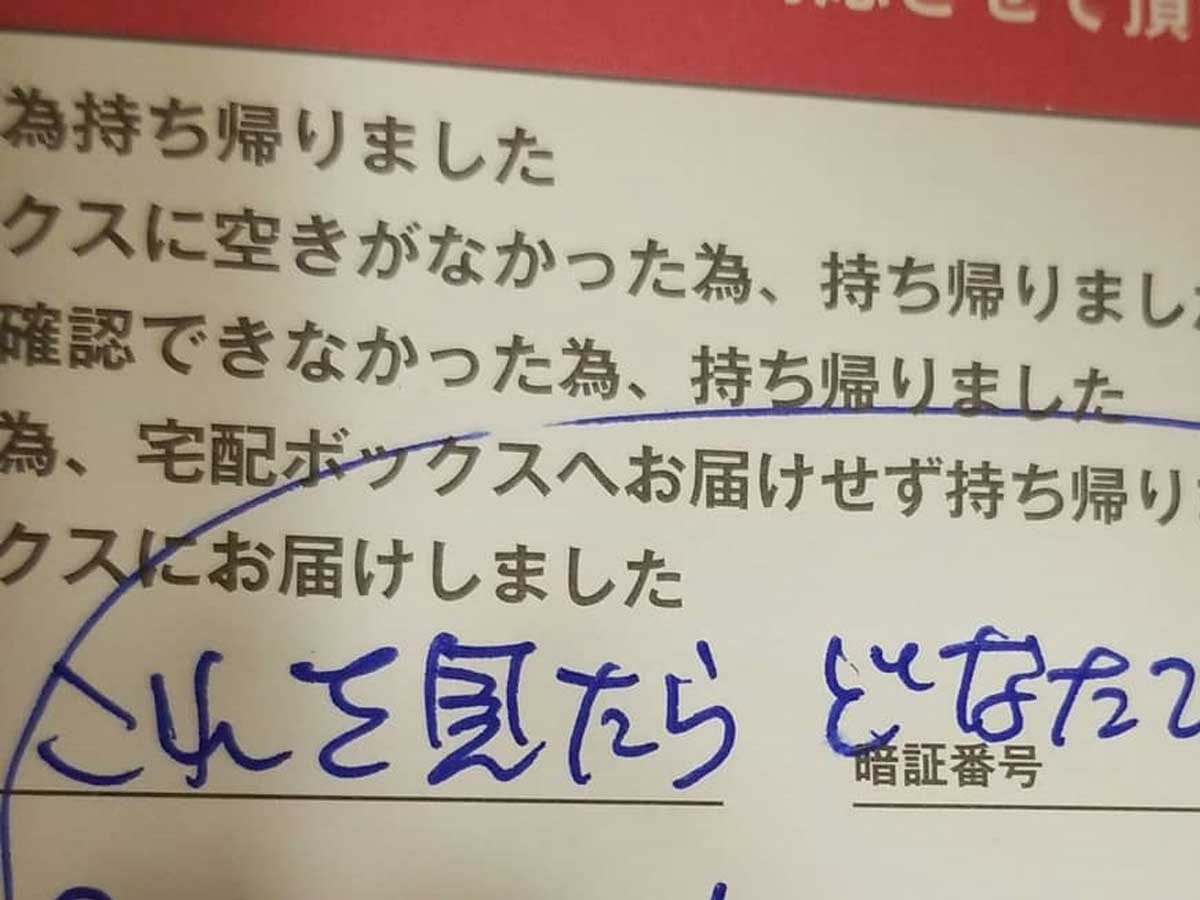 させて頂
為持ち帰りました
クスに空きがなかった為、持ち帰りました
確認できなかった為、持ち帰りました
為、宅配ボックスへお届けせず持ち帰り
クスにお届けしました
これを見たら どなた
暗証番号